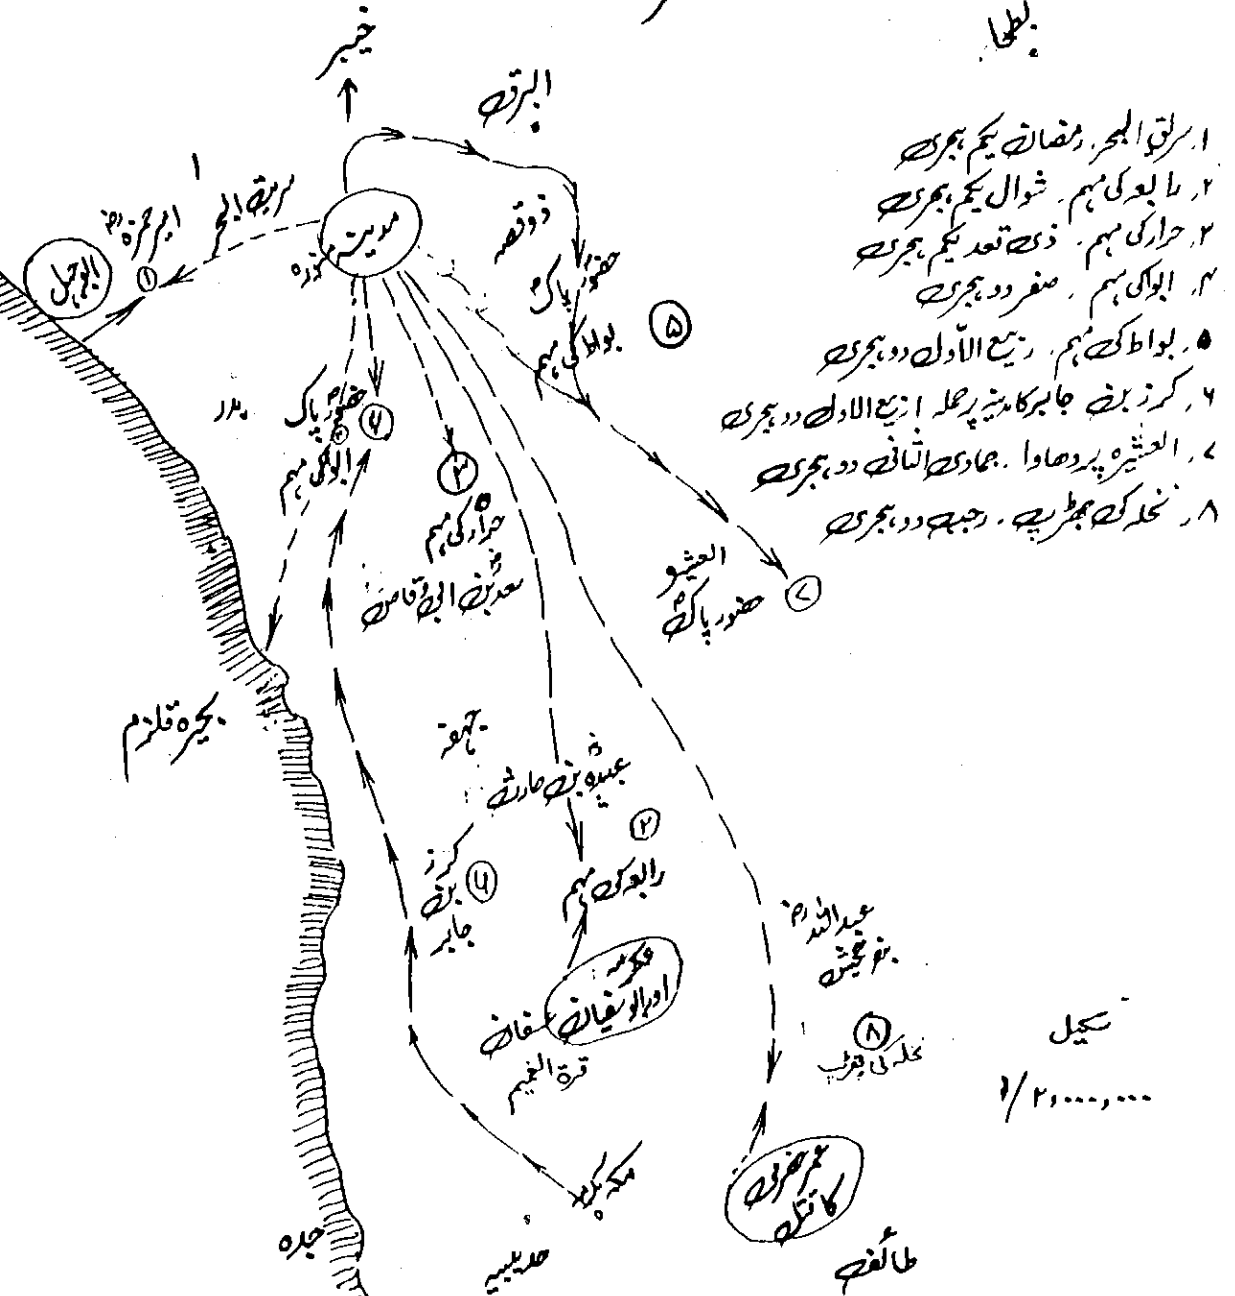 خیبر
بطحا
البرق
۱. سریۃ البحر. رمضان یکم ہجری
۲. رابعہ کی مہم. شوال یکم ہجری
۳. حرار کی مہم. ذی قعد یکم ہجری
۴. ابوا کی مہم. صفر دو ہجری
۵. بواط کی مہم. ربیع الاوّل دو ہجری
۶. کرز بن جابر کا مدینہ پر حملہ ربیع الاول دو ہجری
۷. العشیرہ پر دھاوا. جمادی الثانی دو ہجری
۸. نخلہ کی جھڑپ. رجب دو ہجری
۱
سریۃ البحر
امیر حمزہؓ
۱
ابوجہل
مدینہ منورہ
ذوقصہ
حضور پاکؐ
بواط کی مہم
۵
بدر
حضور پاکؐ
۴
ابوا کی مہم
۶
۳
حرار کی مہم
سعدؓ بن ابی وقاص
العشیرہ
حضور پاکؐ
۷
بحیرہ قلزم
جحفہ
عبیدہؓ بن حارث
۲
رابعہ کی مہم
کرز
بن
جابر
۶
عکرمہ
اور ابوسفیان
عسفان
قرۃ الغمیم
عبداللہؓ
بن جحش
۸
نخلہ کی جھڑپ
سکیل
۱/۲,۰۰۰,۰۰۰
مکہ مکرمہ
کا قتل
جدہ
حدیبیہ
طائف